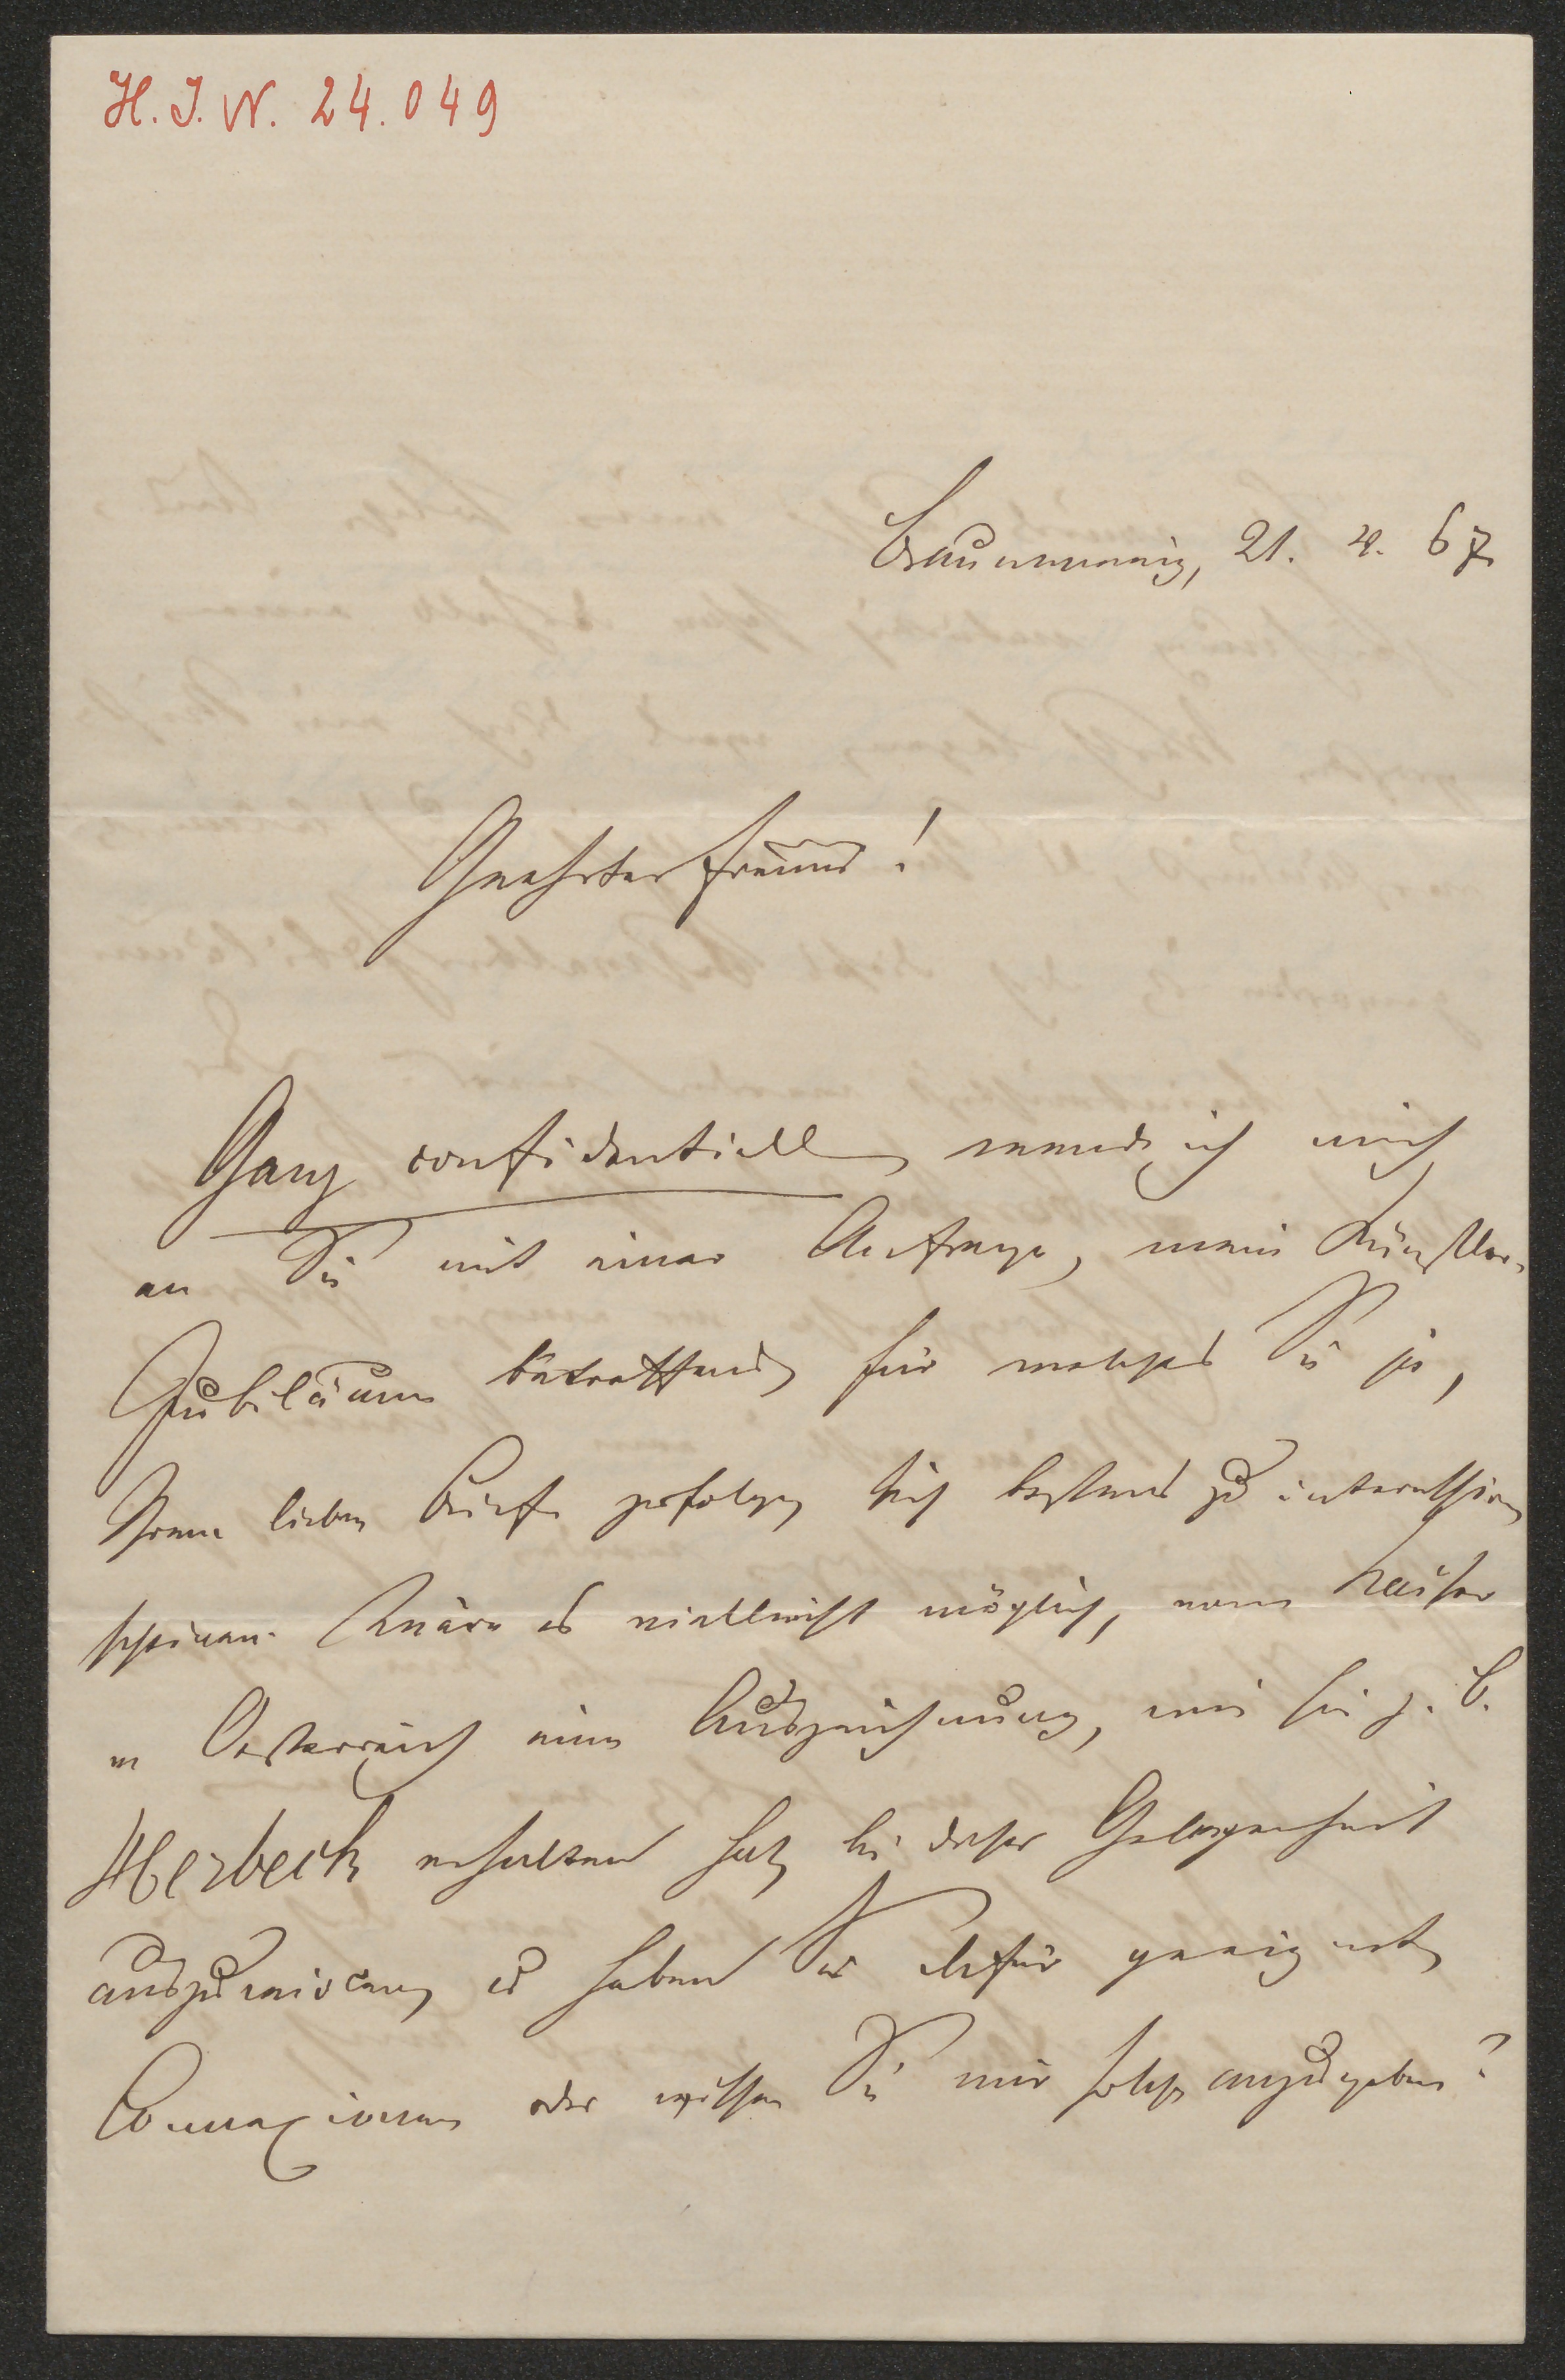 H. I. N. 24.049
Braunschweig, 21. 4. 67
Geehrter Freund!
Ganz confidentiell wende ich mich
an Sie mit einer Anfrage, mein Künstler-
Jubiläum betreffend, für welches Sie ja,
Ihrem lieben Briefe zufolge, sich bestens zu interessiren
scheinen. Wäre es vielleicht möglich, vom Kaiser
v. Oesterreich eine Auszeichnung, wie sie z. B.
Herbeck erhalten hat, bei dieser Gelegenheit
auszuwirken, u haben Sie dafür geeignete
Connexionen oder wissen Sie mir solche anzugeben?